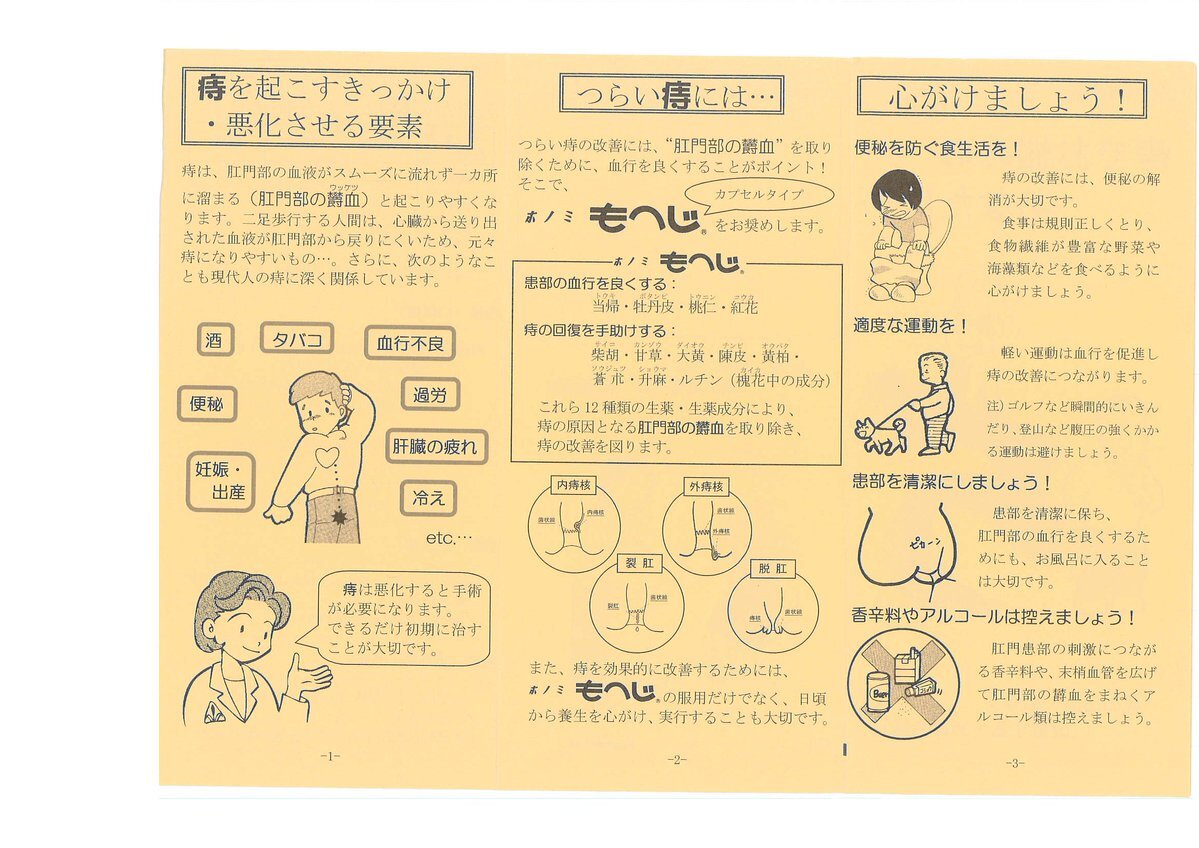 痔を起こすきっかけ
・悪化させる要素
痔は、肛門部の血液がスムーズに流れず一カ所
に溜まる（肛門部の欝血）と起こりやすくな
ウッケツ
ります。二足歩行する人間は、心臓から送り出
された血液が肛門部から戻りにくいため、元々
痔になりやすいもの…。さらに、次のようなこ
とも現代人の痔に深く関係しています。
酒
タバコ
血行不良
便秘
過労
肝臓の疲れ
妊娠・
出産
冷え
etc.…
痔は悪化すると手術
が必要になります。
できるだけ初期に治す
ことが大切です。
-1-
つらい痔には…
つらい痔の改善には、“肛門部の欝血”を取り
除くために、血行を良くすることがポイント！
そこで、
カプセルタイプ
ホノミ もへじ® をお奨めします。
ホノミ もへじ®
患部の血行を良くする：
トウキ ボタンピ トウニン コウカ
当帰・牡丹皮・桃仁・紅花
痔の回復を手助けする：
サイコ カンゾウ ダイオウ チンピ オウバク
柴胡・甘草・大黄・陳皮・黄柏・
ソウジュツ ショウマ カイカ
蒼朮・升麻・ルチン（槐花中の成分）
これら 12 種類の生薬・生薬成分により、
痔の原因となる肛門部の欝血を取り除き、
痔の改善を図ります。
内痔核
歯状線
内痔核
外痔核
歯状線
外痔核
裂肛
裂肛
歯状線
脱肛
痔核
歯状線
また、痔を効果的に改善するためには、
ホノミ もへじ® の服用だけでなく、日頃
から養生を心がけ、実行することも大切です。
-2-
心がけましょう！
便秘を防ぐ食生活を！
痔の改善には、便秘の解
消が大切です。
食事は規則正しくとり、
食物繊維が豊富な野菜や
海藻類などを食べるように
心がけましょう。
適度な運動を！
軽い運動は血行を促進し
痔の改善につながります。
注）ゴルフなど瞬間的にいきん
だり、登山など腹圧の強くかか
る運動は避けましょう。
患部を清潔にしましょう！
ピカーン
患部を清潔に保ち、
肛門部の血行を良くするた
めにも、お風呂に入ること
は大切です。
香辛料やアルコールは控えましょう！
Beer
肛門患部の刺激につなが
る香辛料や、末梢血管を広げ
て肛門部の欝血をまねくア
ルコール類は控えましょう。
-3-